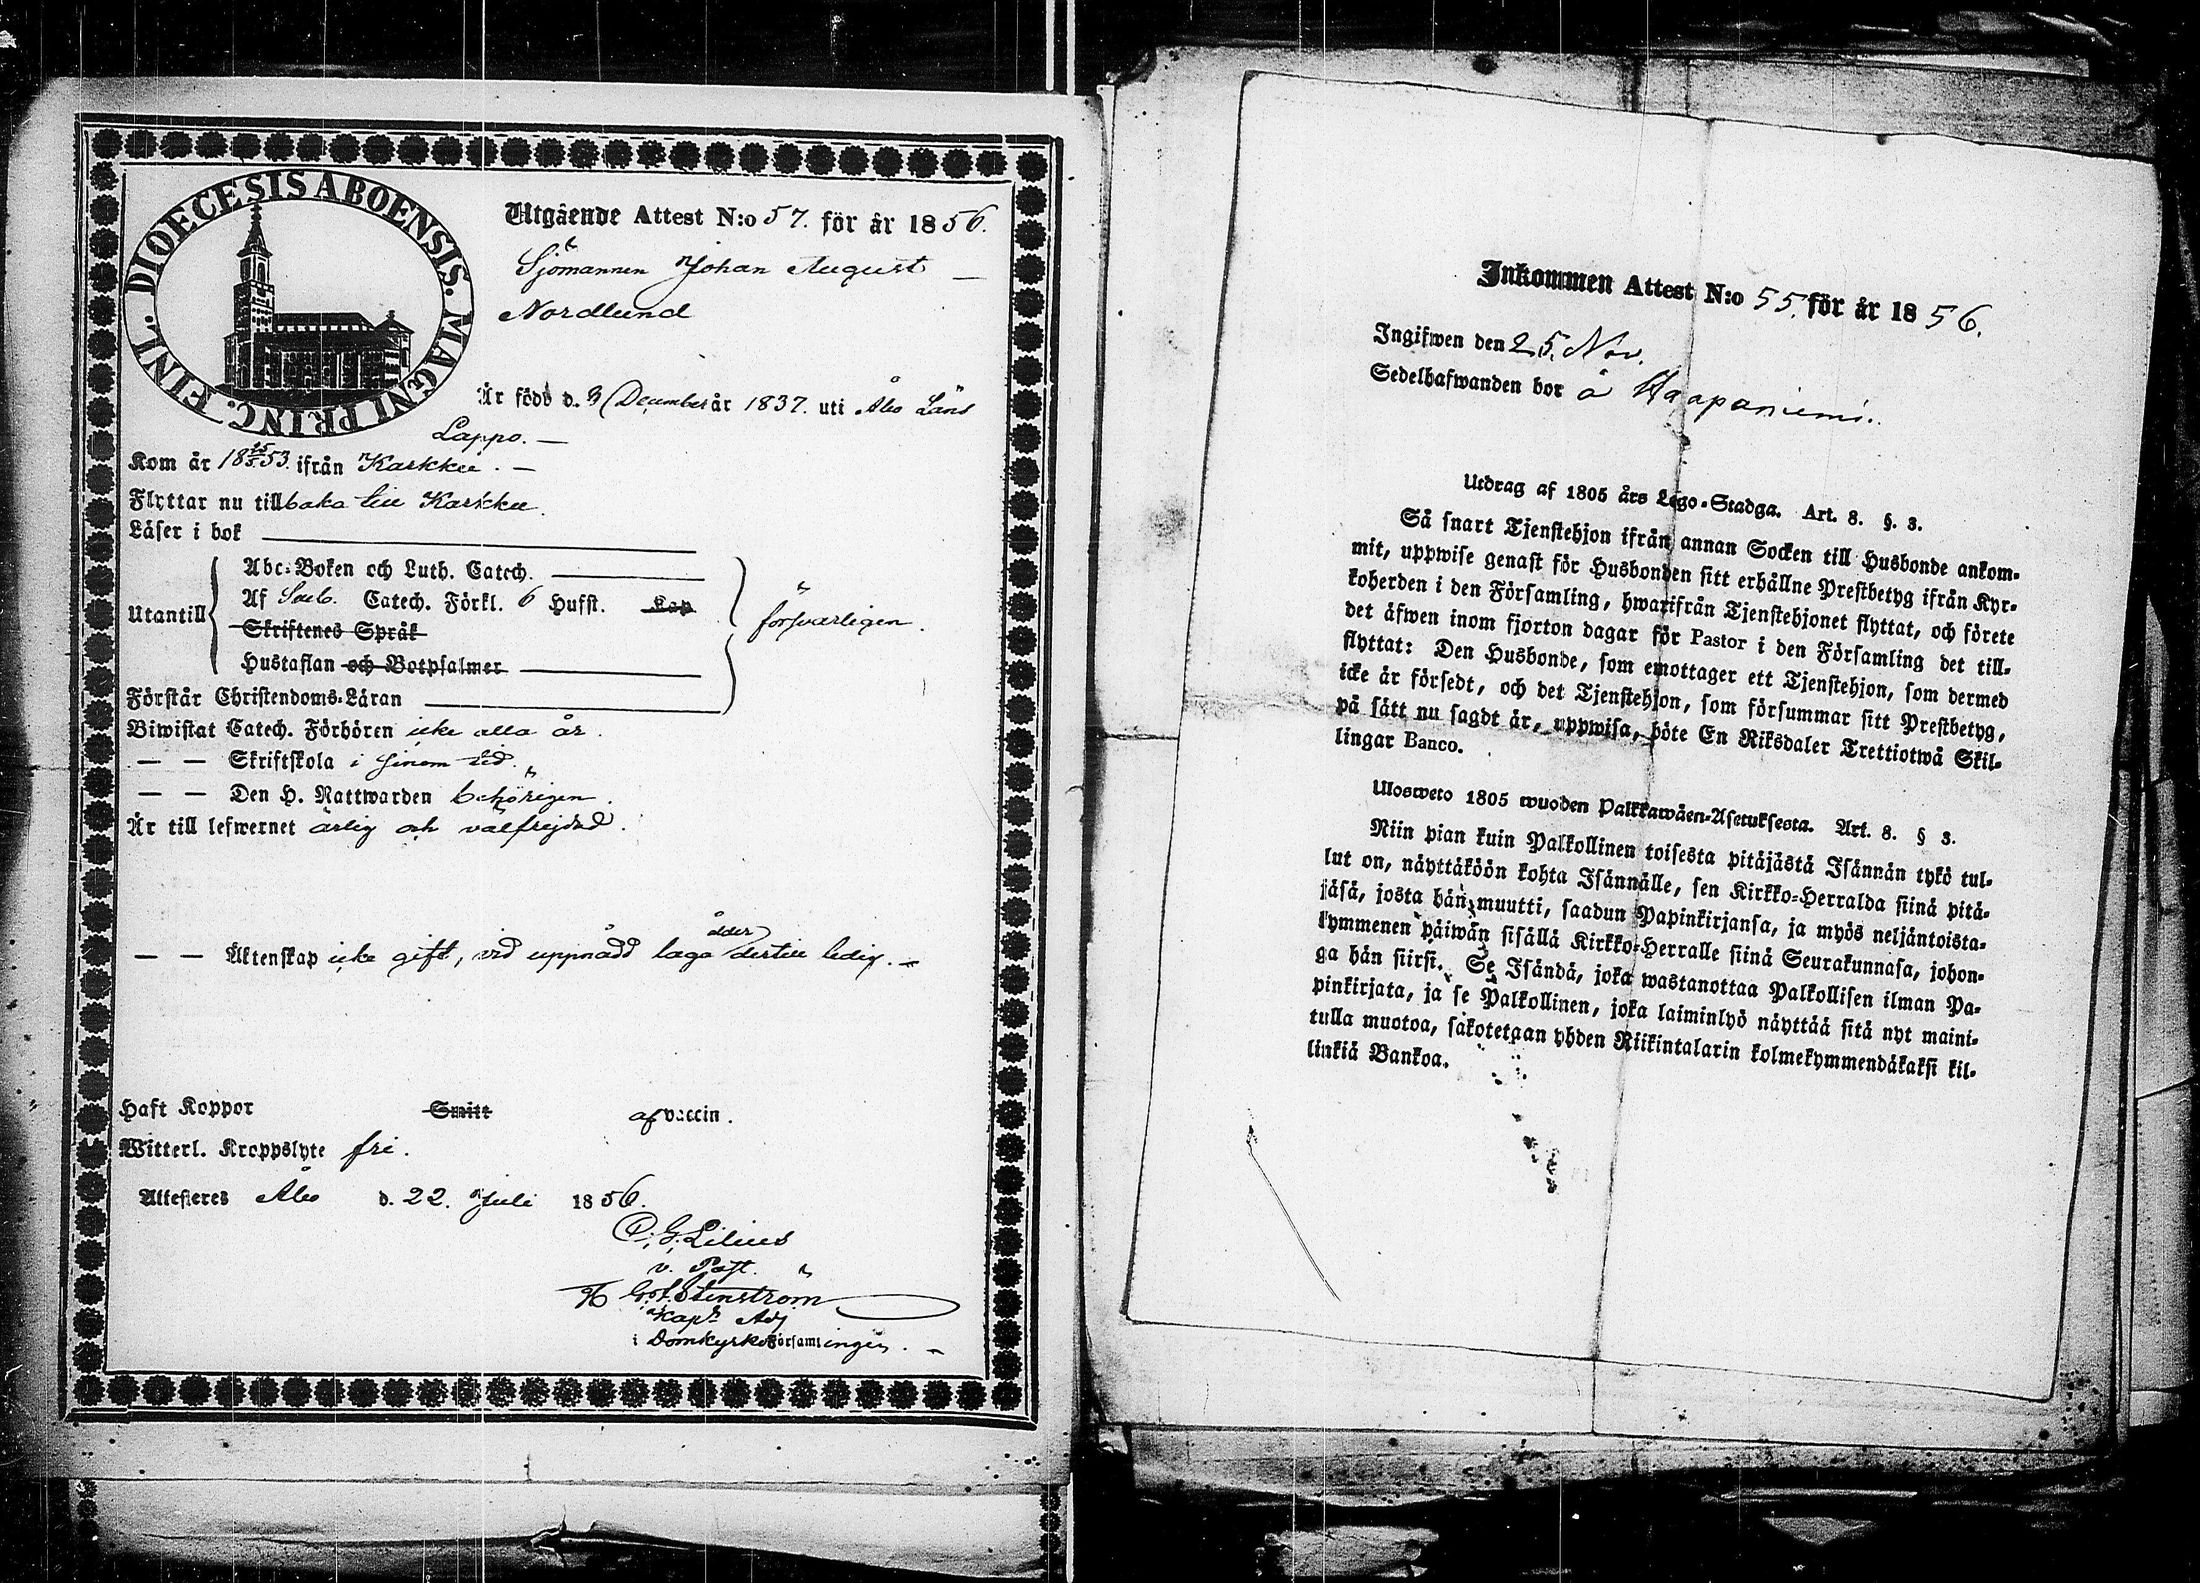 DIOECESIS ABOENSIS. MAGNI PRINC. FINL.
Utgående Attest N:o 57. för år 1856.
Sjömannen Johan August
Nordlund
Är född d. 3 December år 1837. uti Åbo Läns
Lappo. —
Kom år 18 53. ifrån Karkku. —
Flyttar nu tillbaka till Karkku.
Läser i bok
Abc-Boken och Luth. Catech.
Utantill
Af Sveb. Catech. Förkl. 6 Hufst. Kap
Skriftenes Språk
försvarligen.
Hustaflan och Botpsalmer
Förstår Christendoms-Läran
Biwistat Catech. Förhören icke alla år.
— — Skriftskola i sinom tid.
— — Den H. Nattwarden behörigen.
Är till lefwernet ärlig och välfrejdad.
ålder
— — Äktenskap icke gift, vid uppnådd laga dertill ledig. —
Haft Koppor Smitt af vaccin.
Witterl. Kroppslyte fri.
Attesteres Åbo d. 22. Juli 1856.
C. G. Lilius
v. Past.
Stenström
Kapl. Adj
i Domkyrko Församlingen. —
Inkommen Attest N:o 55. för år 1856.
Ingifwen den 25. Nov.
Sedelhafwanden bor å Haapaniemi.
Utdrag af 1805 års Lego-Stadga. Art. 8. §. 3.
Så snart Tjenstehjon ifrån annan Socken till Husbonde ankom-
mit, uppwise genast för Husbonden sitt erhållne Prestbetyg ifrån Kyr-
koherden i den Församling, hwarifrån Tjenstehjonet flyttat, och förete
det äfwen inom fjorton dagar för Pastor i den Församling det till-
flyttat: Den Husbonde, som emottager ett Tjenstehjon, som dermed
icke är försedt, och det Tjenstehjon, som försummar sitt Prestbetyg,
på sätt nu sagdt är, uppwisa, böte En Riksdaler Trettiotwå Skil-
lingar Banco.
Ulosweto 1805 wuoden Palkkawäen-Asetuksesta. Art. 8. § 3.
Niin pian kuin Palkollinen toisesta pitäjästä Isännän tykö tul-
lut on, näyttäköön kohta Isännälle, sen Kirkko-Herralda siinä pitä-
jäsä, josta hän muutti, saadun Papinkirjansa, ja myös neljäntoista-
kymmenen päiwän sisällä Kirkko-Herralle siinä Seurakunnasa, johon-
ga hän siirsi. Se Isändä, joka wastanottaa Palkollisen ilman Pa-
pinkirjata, ja se Palkollinen, joka laiminlyö näyttää sitä nyt maini-
tulla muotoa, sakotetaan yhden Riikintalarin kolmekymmendäkaksi kil-
linkiä Bankoa.